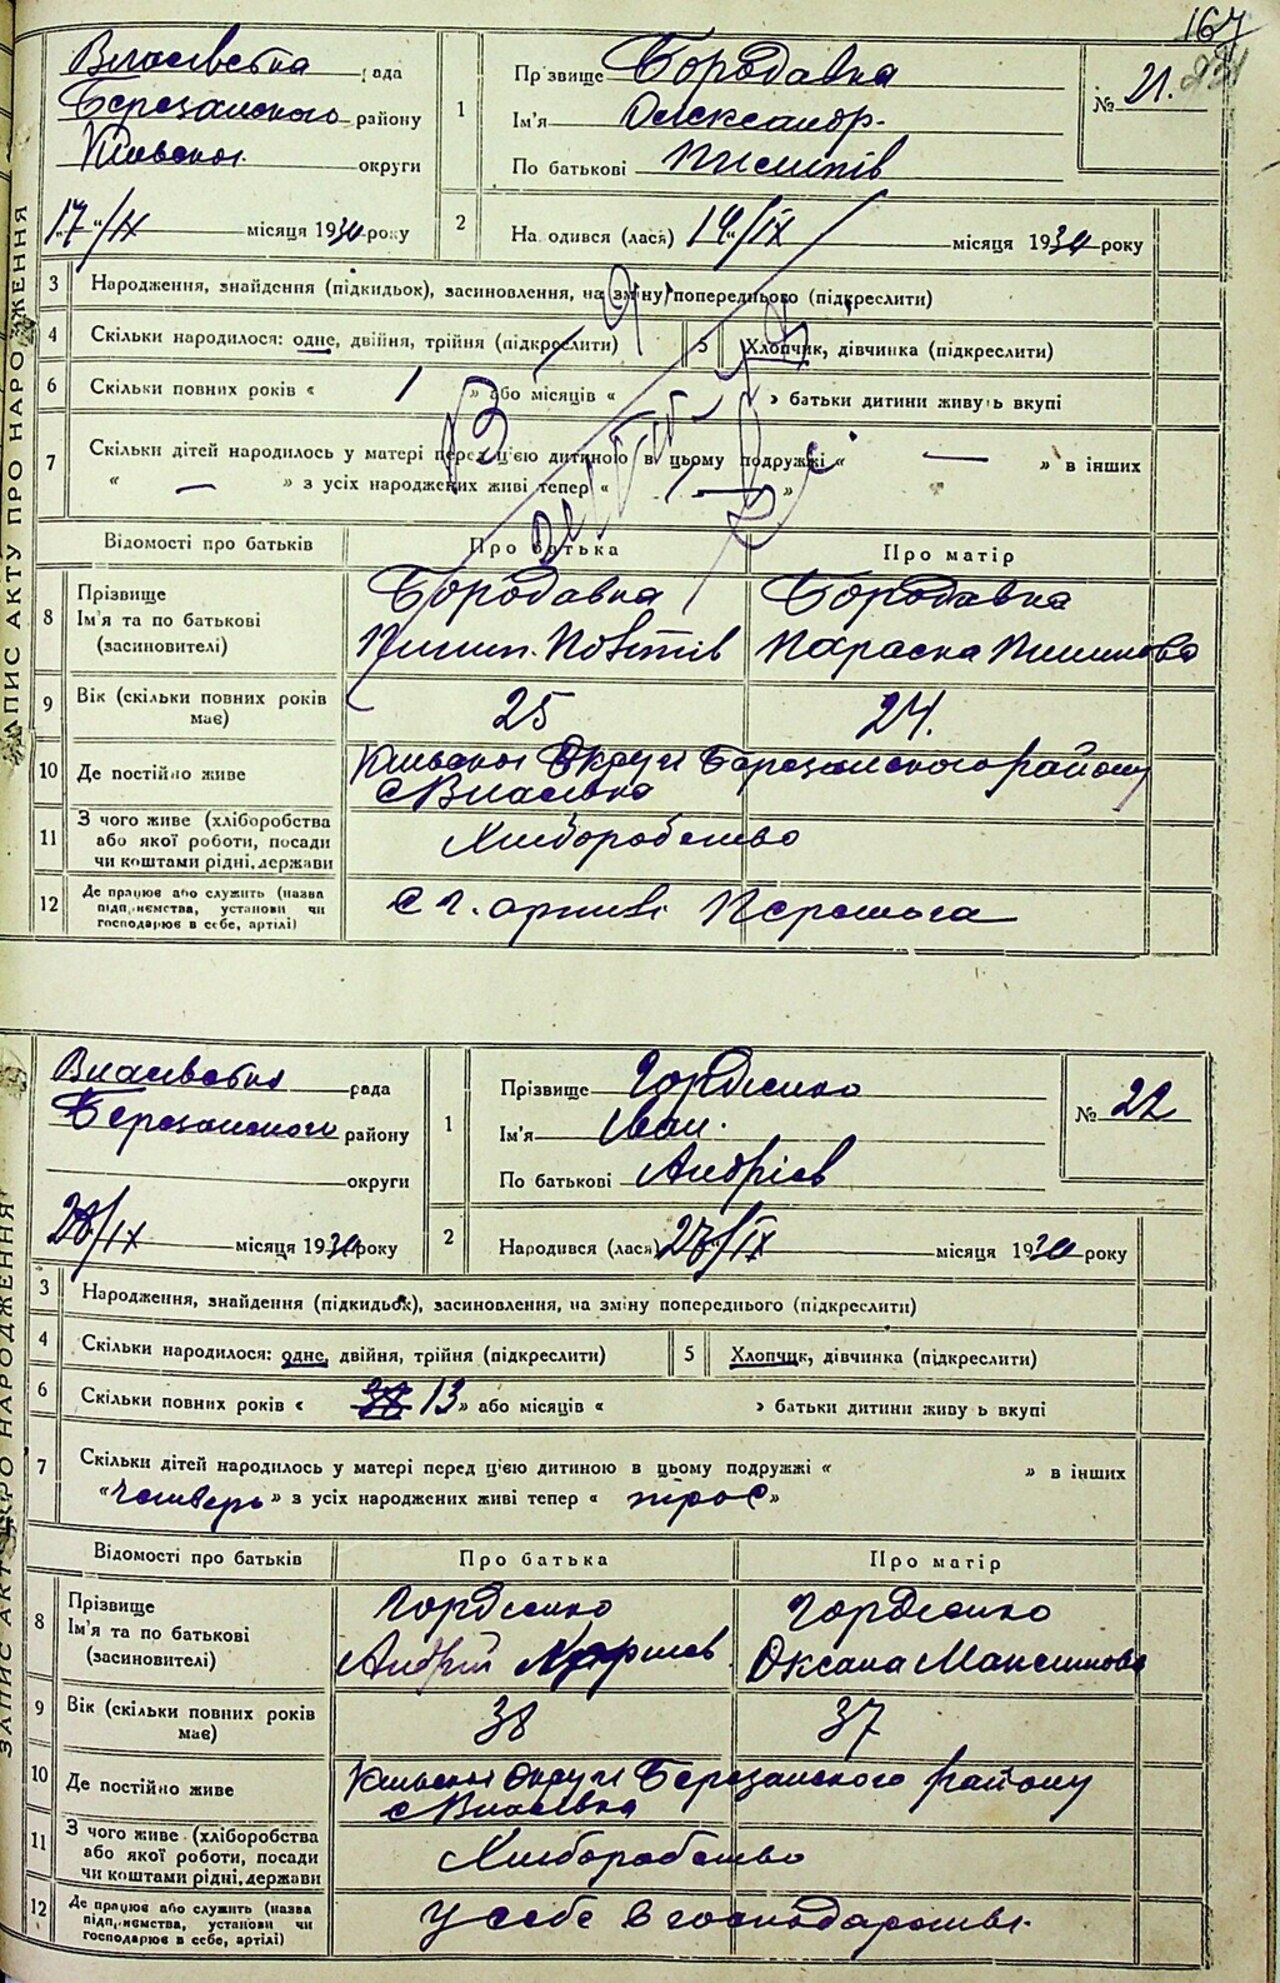 167
Власівська рада
Березанського району
Київської округи
„17“/IX місяця 1930 року
1
Прізвище Бородавка
Ім'я Олександр.
По батькові Пилипів
№ 21.
2
Народився (лася) 14/IX місяця 1930 року
3 Народження, знайдення (підкидьок), засиновлення, на зміну попереднього (підкреслити)
4 Скільки народилося: одне, двійня, трійня (підкреслити) 5 Хлопчик, дівчинка (підкреслити)
6 Скільки повних років « 1 » або місяців « » батьки дитини живуть вкупі
7 Скільки дітей народилось у матері перед ц'єю дитиною в цьому подружжі « — » в інших
« — » з усіх народжених живі тепер « — »
Відомості про батьків Про батька Про матір
8 Прізвище Бородавка Бородавка
Ім'я та по батькові Пилип Параска Пилипова
(засиновителі)
9 Вік (скільки повних років має) 25 24.
10 Де постійно живе Київської Округи Березанського району
с Власівка
11 З чого живе (хліборобства
або якої роботи, посади Хліборобство
чи коштами рідні, держави
12 Де працює або служить (назва
підприємства, установи чи С г. артілі Перемога
господарює в себе, артілі)
ЗАПИС АКТУ ПРО НАРОДЖЕННЯ
Власівська рада
Березанського району
округи
28/IX місяця 1930 року
1
Прізвище Гордієнко
Ім'я Іван.
По батькові Андріїв
№ 22
2
Народився (лася) 27/IX місяця 1930 року
3 Народження, знайдення (підкидьок), засиновлення, на зміну попереднього (підкреслити)
4 Скільки народилося: одне, двійня, трійня (підкреслити) 5 Хлопчик, дівчинка (підкреслити)
6 Скільки повних років « 13 » або місяців « » батьки дитини живуть вкупі
7 Скільки дітей народилось у матері перед ц'єю дитиною в цьому подружжі « » в інших
« четверо » з усіх народжених живі тепер « троє »
Відомості про батьків Про батька Про матір
8 Прізвище Гордієнко Гордієнко
Ім'я та по батькові Андрій Оксана Максимова
(засиновителі)
9 Вік (скільки повних років має) 38 37
10 Де постійно живе Київської Округи Березанського району
с Власівка
11 З чого живе (хліборобства
або якої роботи, посади Хліборобство
чи коштами рідні, держави
12 Де працює або служить (назва
підприємства, установи чи У себе в господарстві.
господарює в себе, артілі)
ЗАПИС АКТУ ПРО НАРОДЖЕННЯ